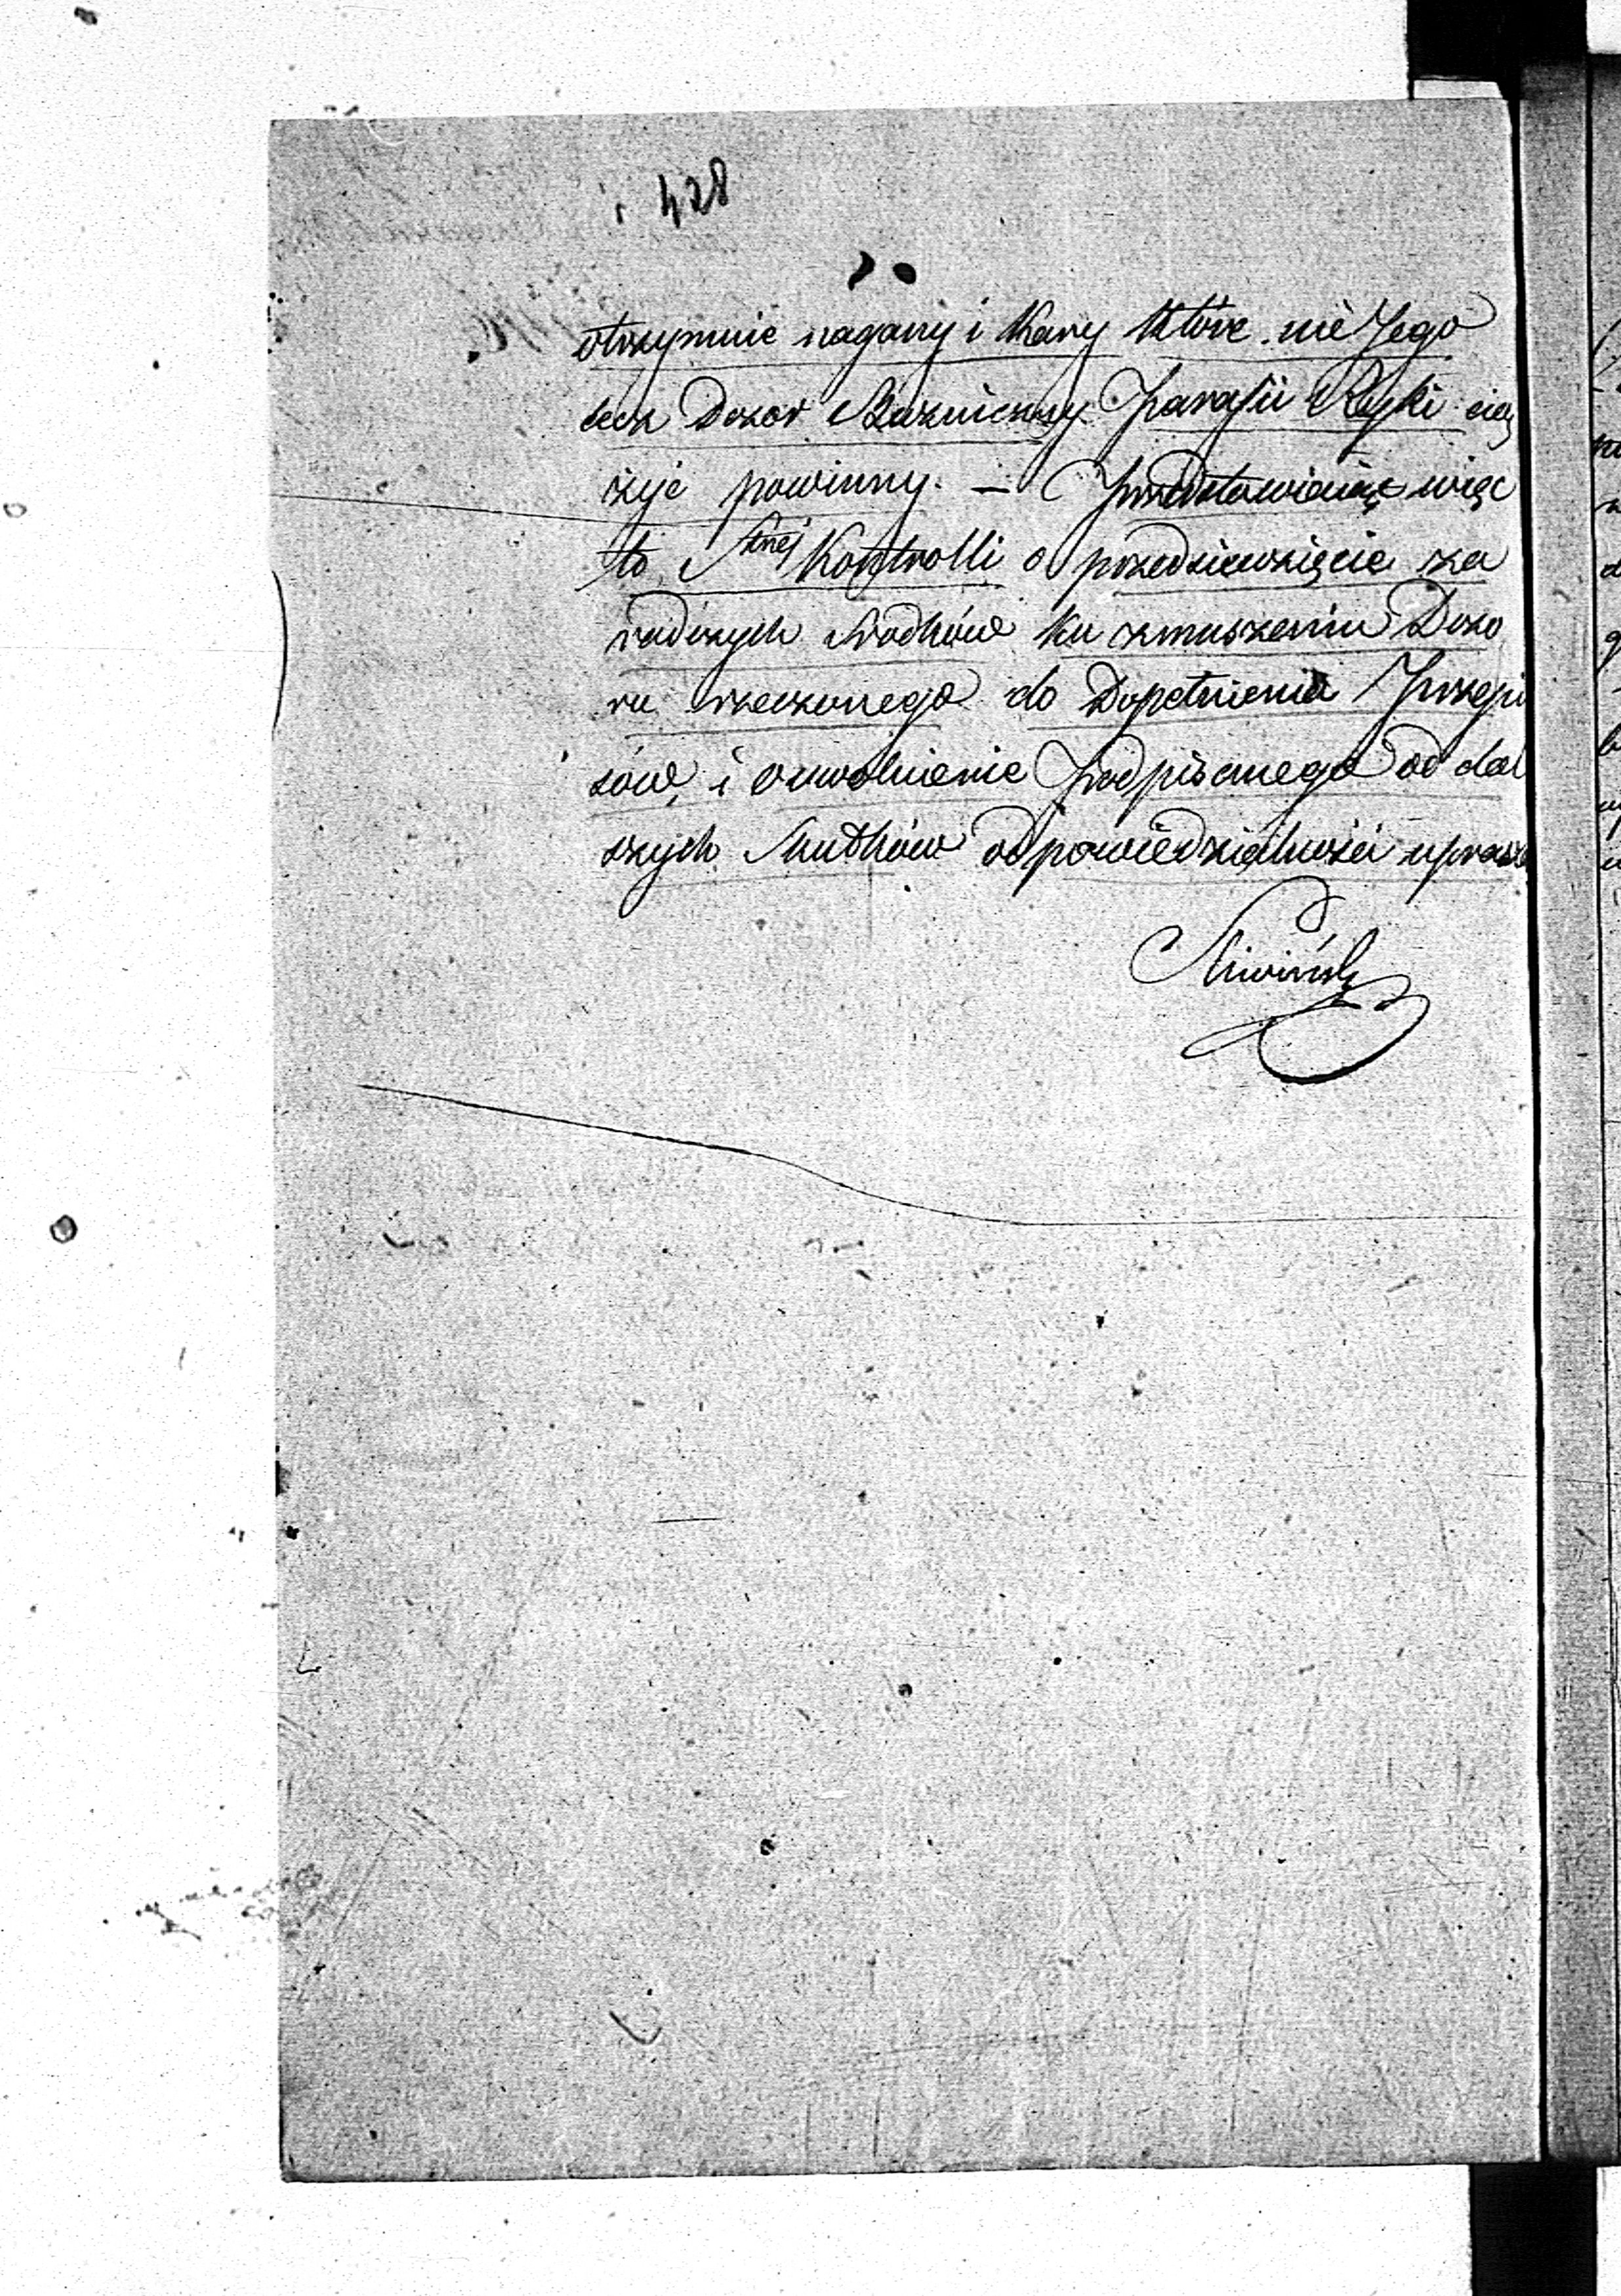 428
otrzymuie nagany i Kary które nie Jego
lecz Dozór Bóżniczny Parafii Ryki cią
żyć powinny. — Przedstawiaiąc więc
to Kontrolli o przedsiewzięcie za
radczych Srodków ku zmuszeniu Dozo
ru rzeczonego do Dopełnienia Przepi
sów, i uwolnienie Podpisanego od dal
szych Skutków odpowiedzialności uprasza